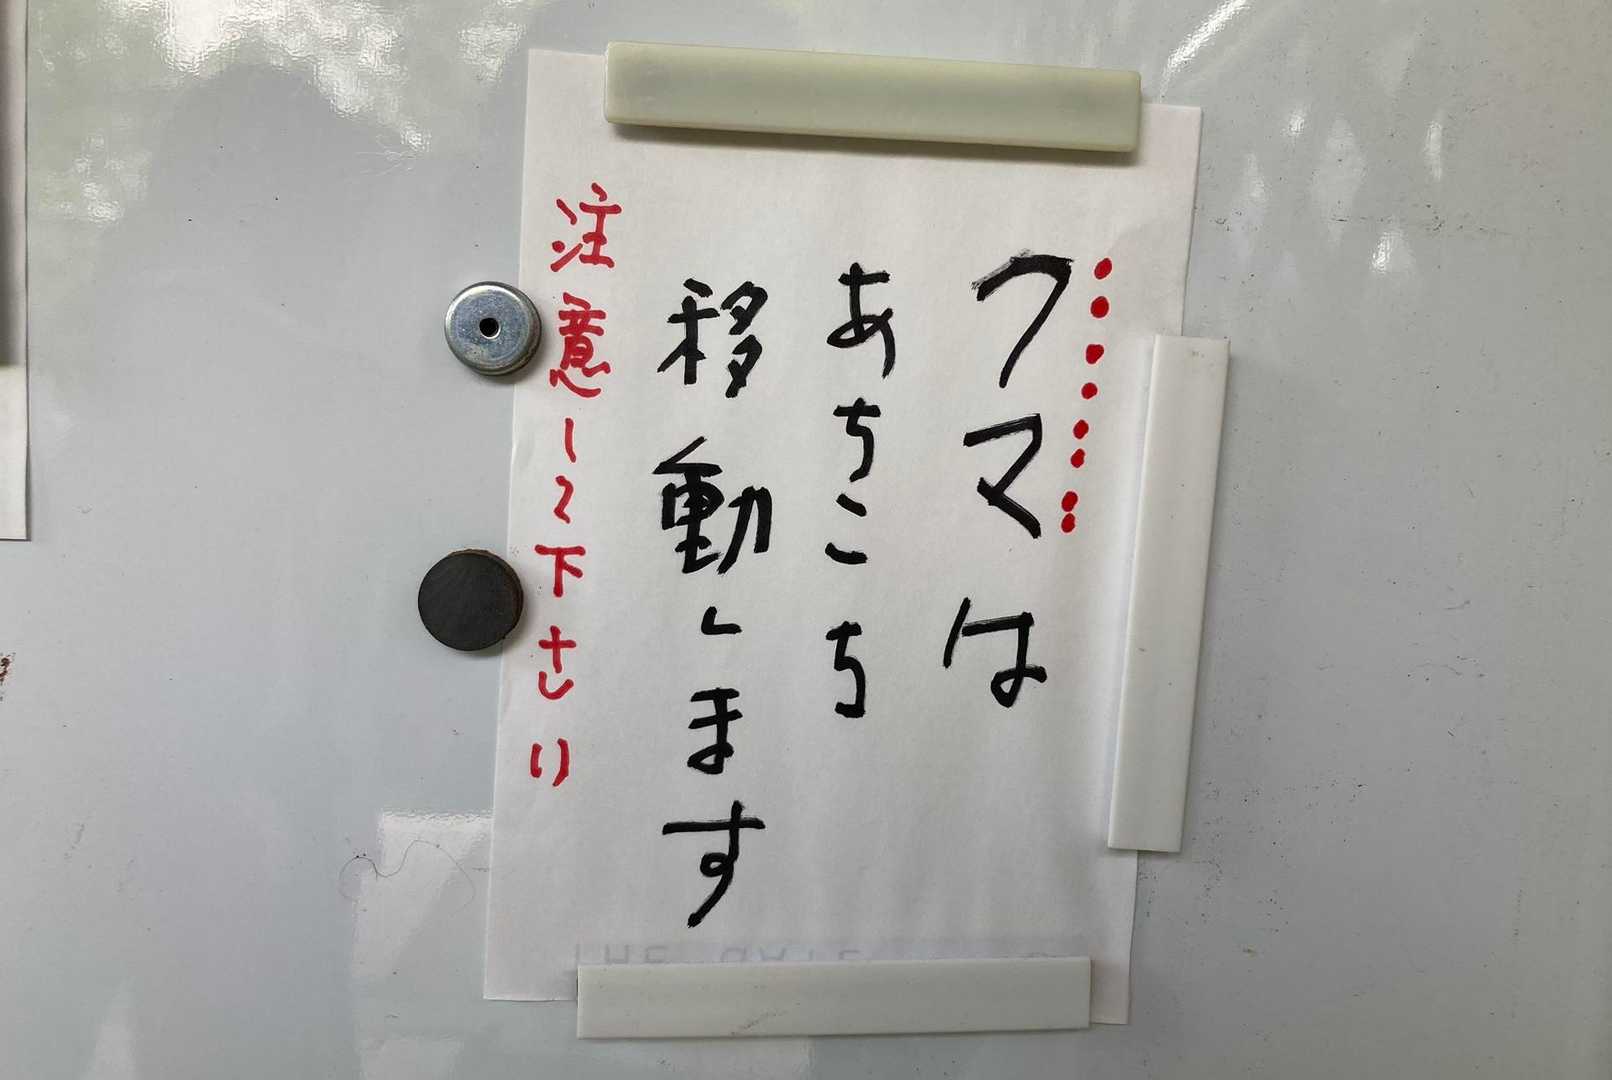 クマは
あちこち
移動します
注意して下さい
THE DATE